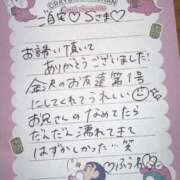 CRAYON SHINCHAN
ご自宅♡Sさま♡
お誘い頂いて
ありがとうございました!
金沢のお友達第1号
にしてくれてうれしい
お兄さんのなめてたら
だんだん濡れてきて
はずかしかった…笑